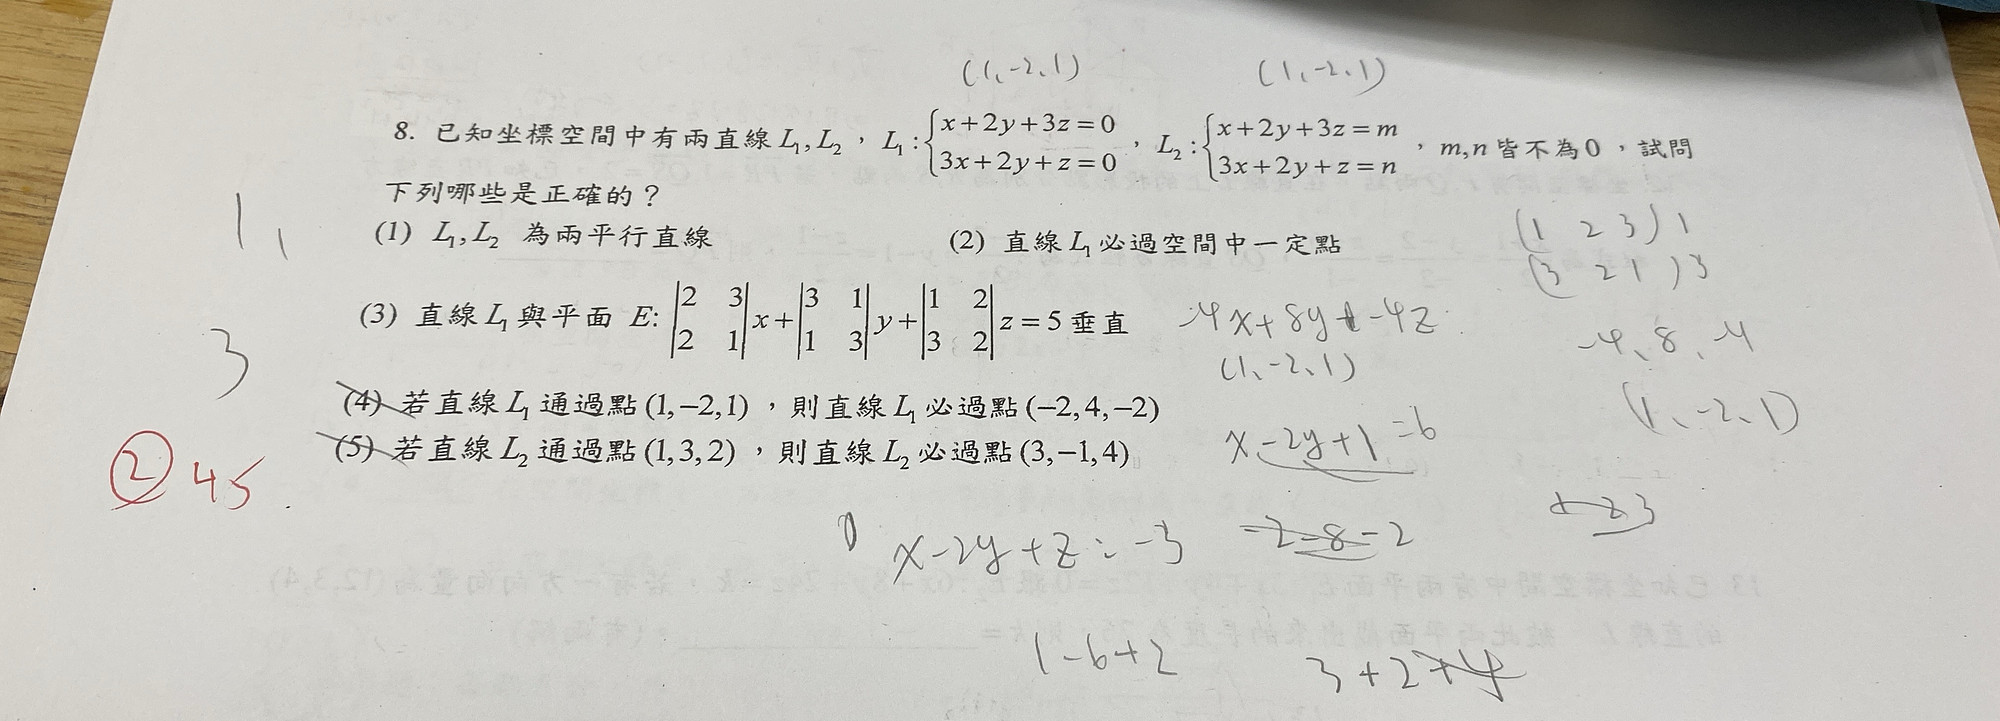 (1,-2,1) (1,-2,1)
8. 已知坐標空間中有兩直線 L₁,L₂，L₁:{x+2y+3z=0，L₂:{x+2y+3z=m，m,n皆不為0，試問
3x+2y+z=0 3x+2y+z=n
下列哪些是正確的？
(1) L₁,L₂ 為兩平行直線 (2) 直線 L₁ 必過空間中一定點
(1 2 3) 1
(3 2 1) 3
1,
(3) 直線 L₁ 與平面 E: |2 3; 2 1|x+|3 1; 1 3|y+|1 2; 3 2|z=5 垂直
-4x+8y+-4z
(1,-2,1)
-4, 8, -4
(1,-2,1)
3
(4) 若直線 L₁ 通過點 (1,-2,1)，則直線 L₁ 必過點 (-2,4,-2)
x-2y+1=6
(5) 若直線 L₂ 通過點 (1,3,2)，則直線 L₂ 必過點 (3,-1,4)
② 45
x-2y+z=-3
-2-8-2
1-6+2
3+2+4